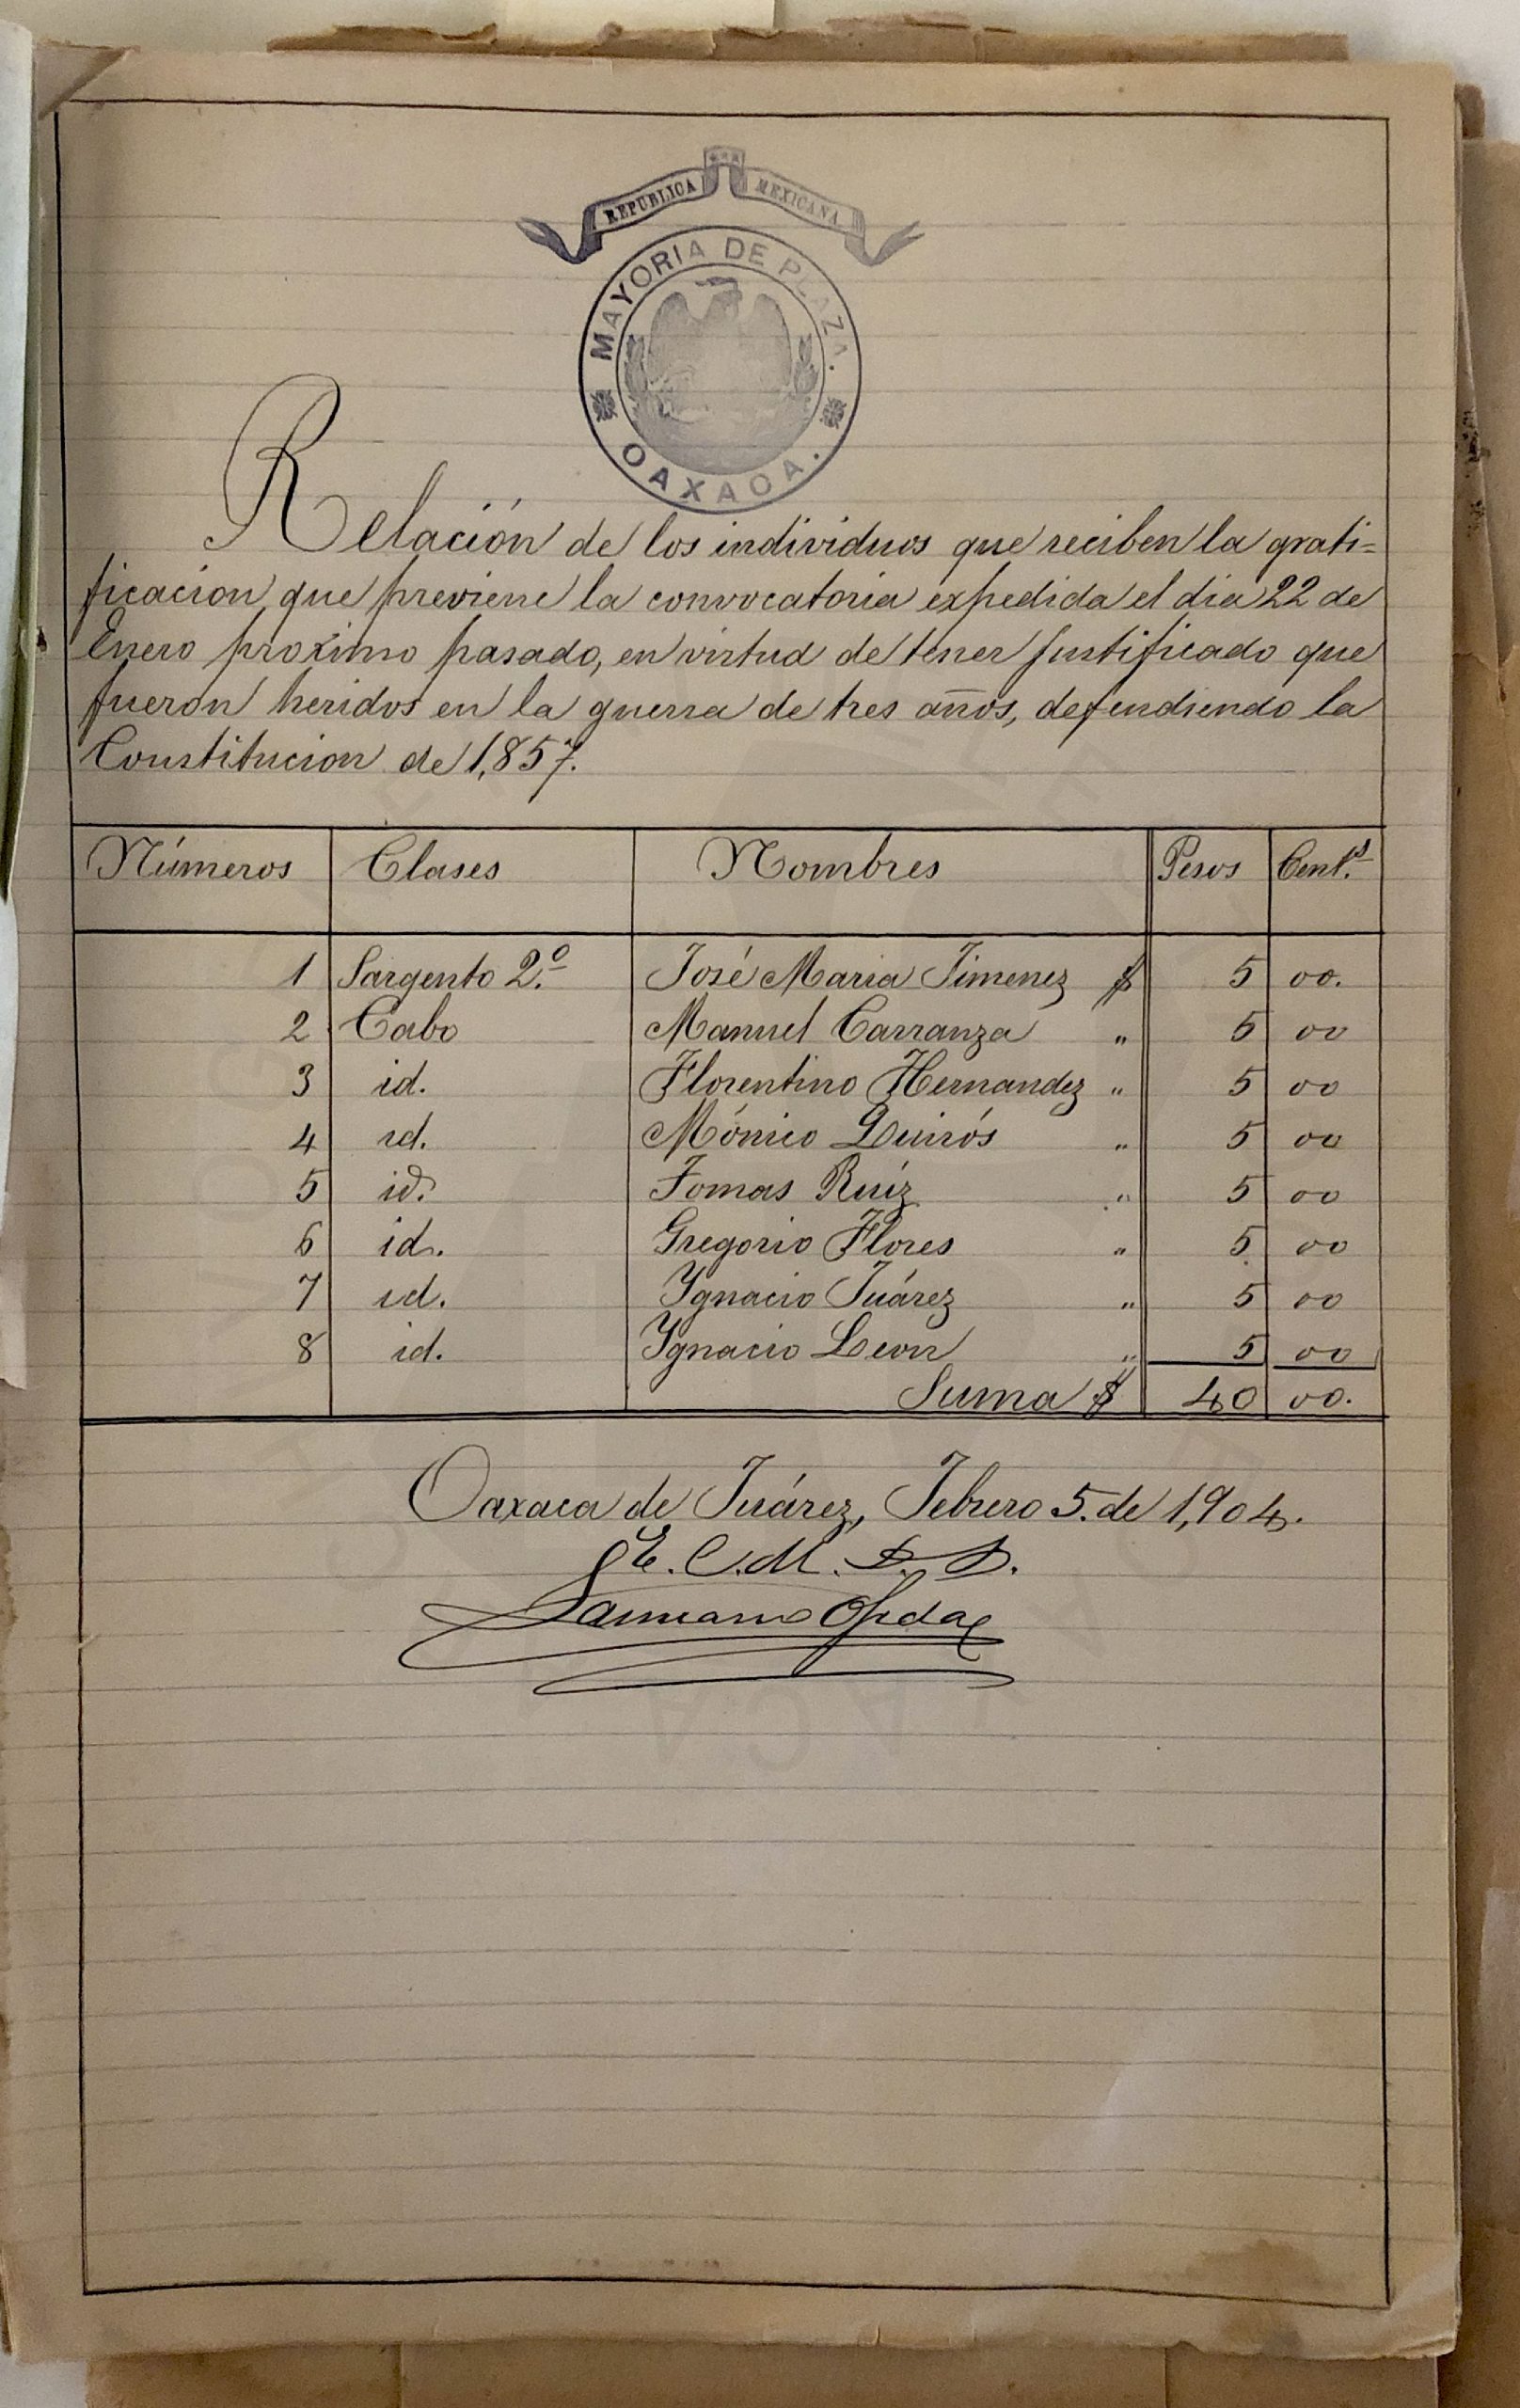 REPUBLICA MEXICANA
MAYORIA DE PLAZA.
OAXACA.
Relación de los individuos que reciben la grati=
ficacion que previene la convocatoria expedida el dia 22 de
Enero proximo pasado, en virtud de tener justificado que
fueron heridos en la guerra de tres años, defendiendo la
Constitucion de 1,857.
Números Clases Nombres Pesos Cent.s
1 Sargento 2.º José Maria Jimenez $ 5 00.
2 Cabo Manuel Carranza " 5 00
3 id. Florentino Hernandez " 5 00
4 id. Mónico Quirós " 5 00
5 id. Tomas Ruíz " 5 00
6 id. Gregorio Flores " 5 00
7 id. Ygnacio Juárez " 5 00
8 id. Ygnacio Leon " 5 00
Suma $ 40 00.
Oaxaca de Juárez, Febrero 5. de 1,904.
E. C. M. D. P.